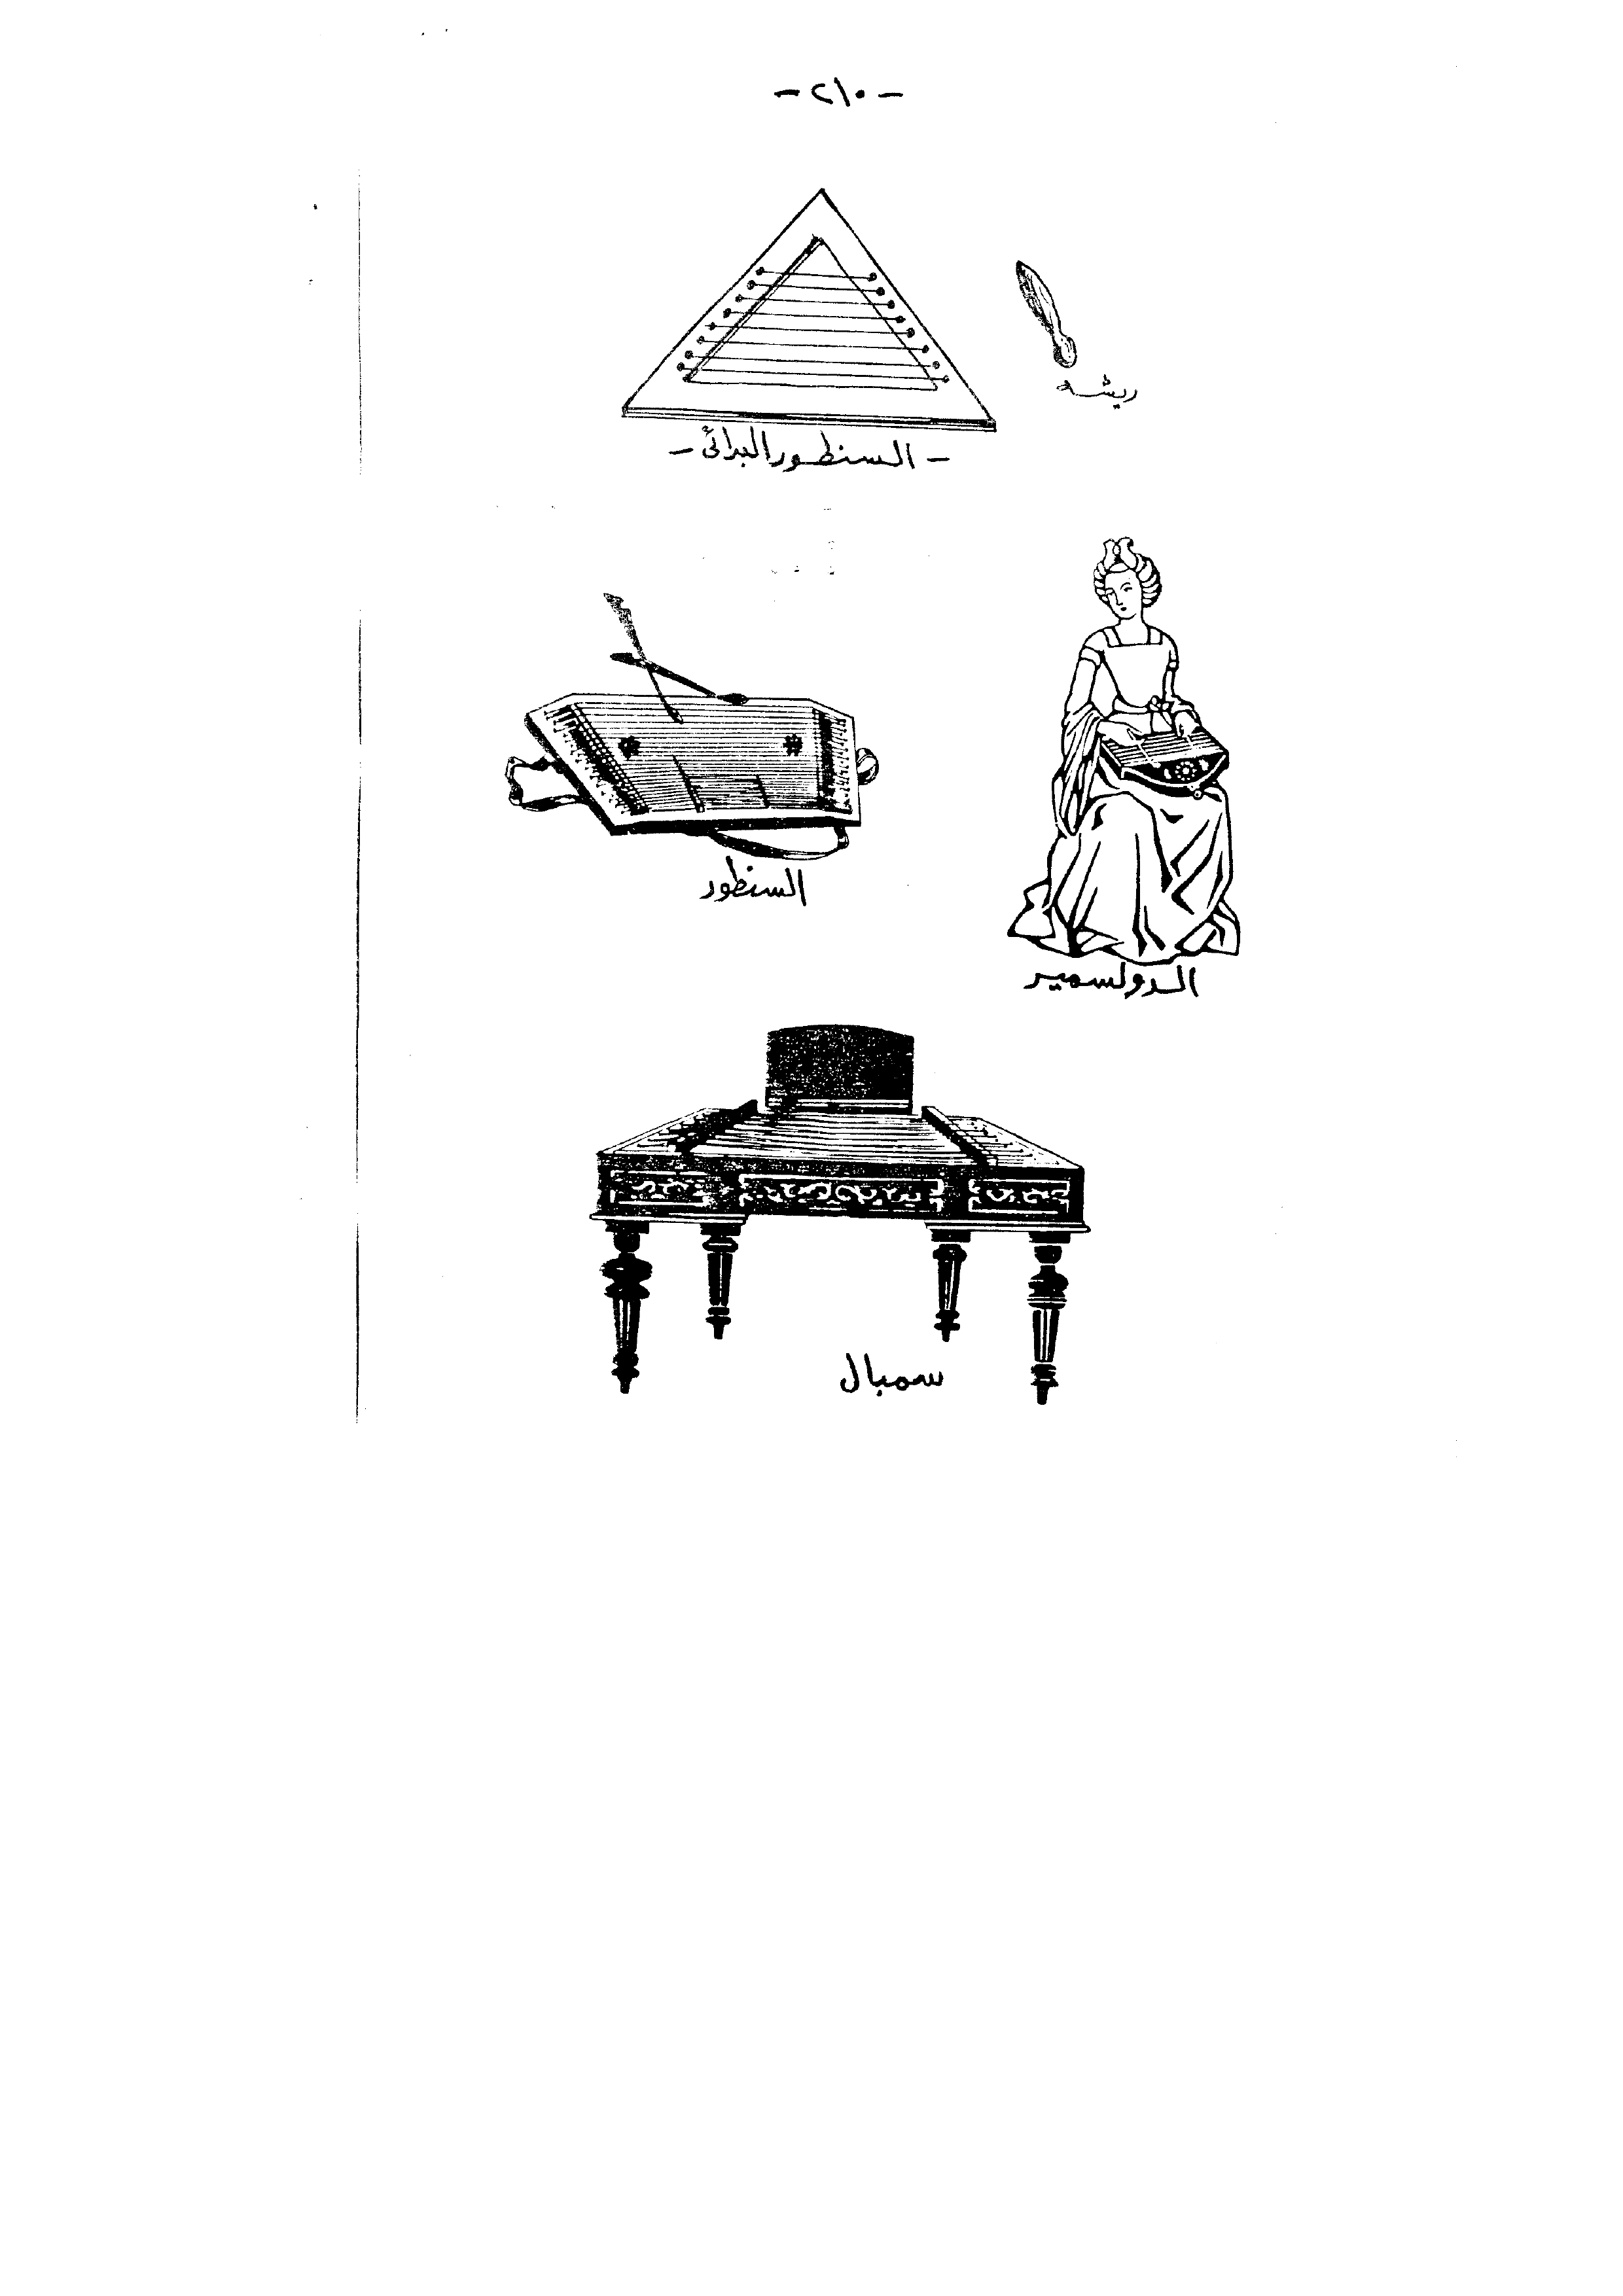 - ٢١٠ -
ريشه
- السنطور البدائى -
السنطور
الدولسمير
سمبال